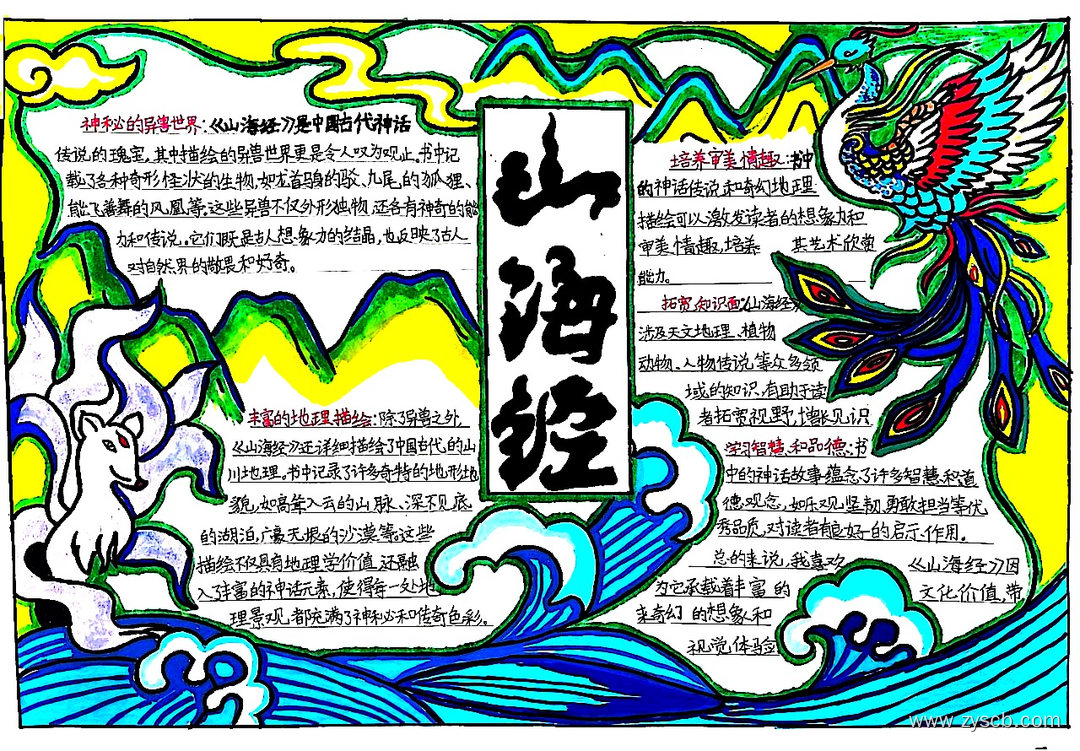 神秘的异兽世界:《山海经》是中国古代神话
传说的瑰宝,其中描绘的异兽世界更是令人叹为观止。书中记
载了各种奇形怪状的生物,如龙首马身的驳、九尾的狐狸、
能飞善舞的凤凰等。这些异兽不仅外形独物,还各有神奇的能
力和传说。它们既是古人想象力的结晶,也反映了古人
对自然界的敬畏和好奇。
丰富的地理描绘:除了异兽之外,
《山海经》还详细描绘了中国古代的山
川地理。书中记录了许多奇特的地形地
貌,如高耸入云的山脉、深不见底
的湖泊,广袤无垠的沙漠等。这些
描绘不仅具有地理学价值,还融
入了丰富的神话元素,使得每一处地
理景观都充满了神秘和传奇色彩。
山海经
培养审美情趣:书中
的神话传说和奇幻地理
描绘可以激发读者的想象力和
审美情趣,培养其艺术欣赏
能力。
拓宽知识面:《山海经》
涉及天文地理、植物
动物、人物传说等众多领
域的知识,有助于读
者拓宽视野,增长见识
学习智慧和品德:书
中的神话故事蕴念了许多智慧和道
德观念,如乐观、坚韧、勇敢担当等优
秀品质,对读者有良好的启示作用。
总的来说,我喜欢《山海经》因
为它承载着丰富的文化价值,带
来奇幻的想象和
视觉体验
www.zyscb.com